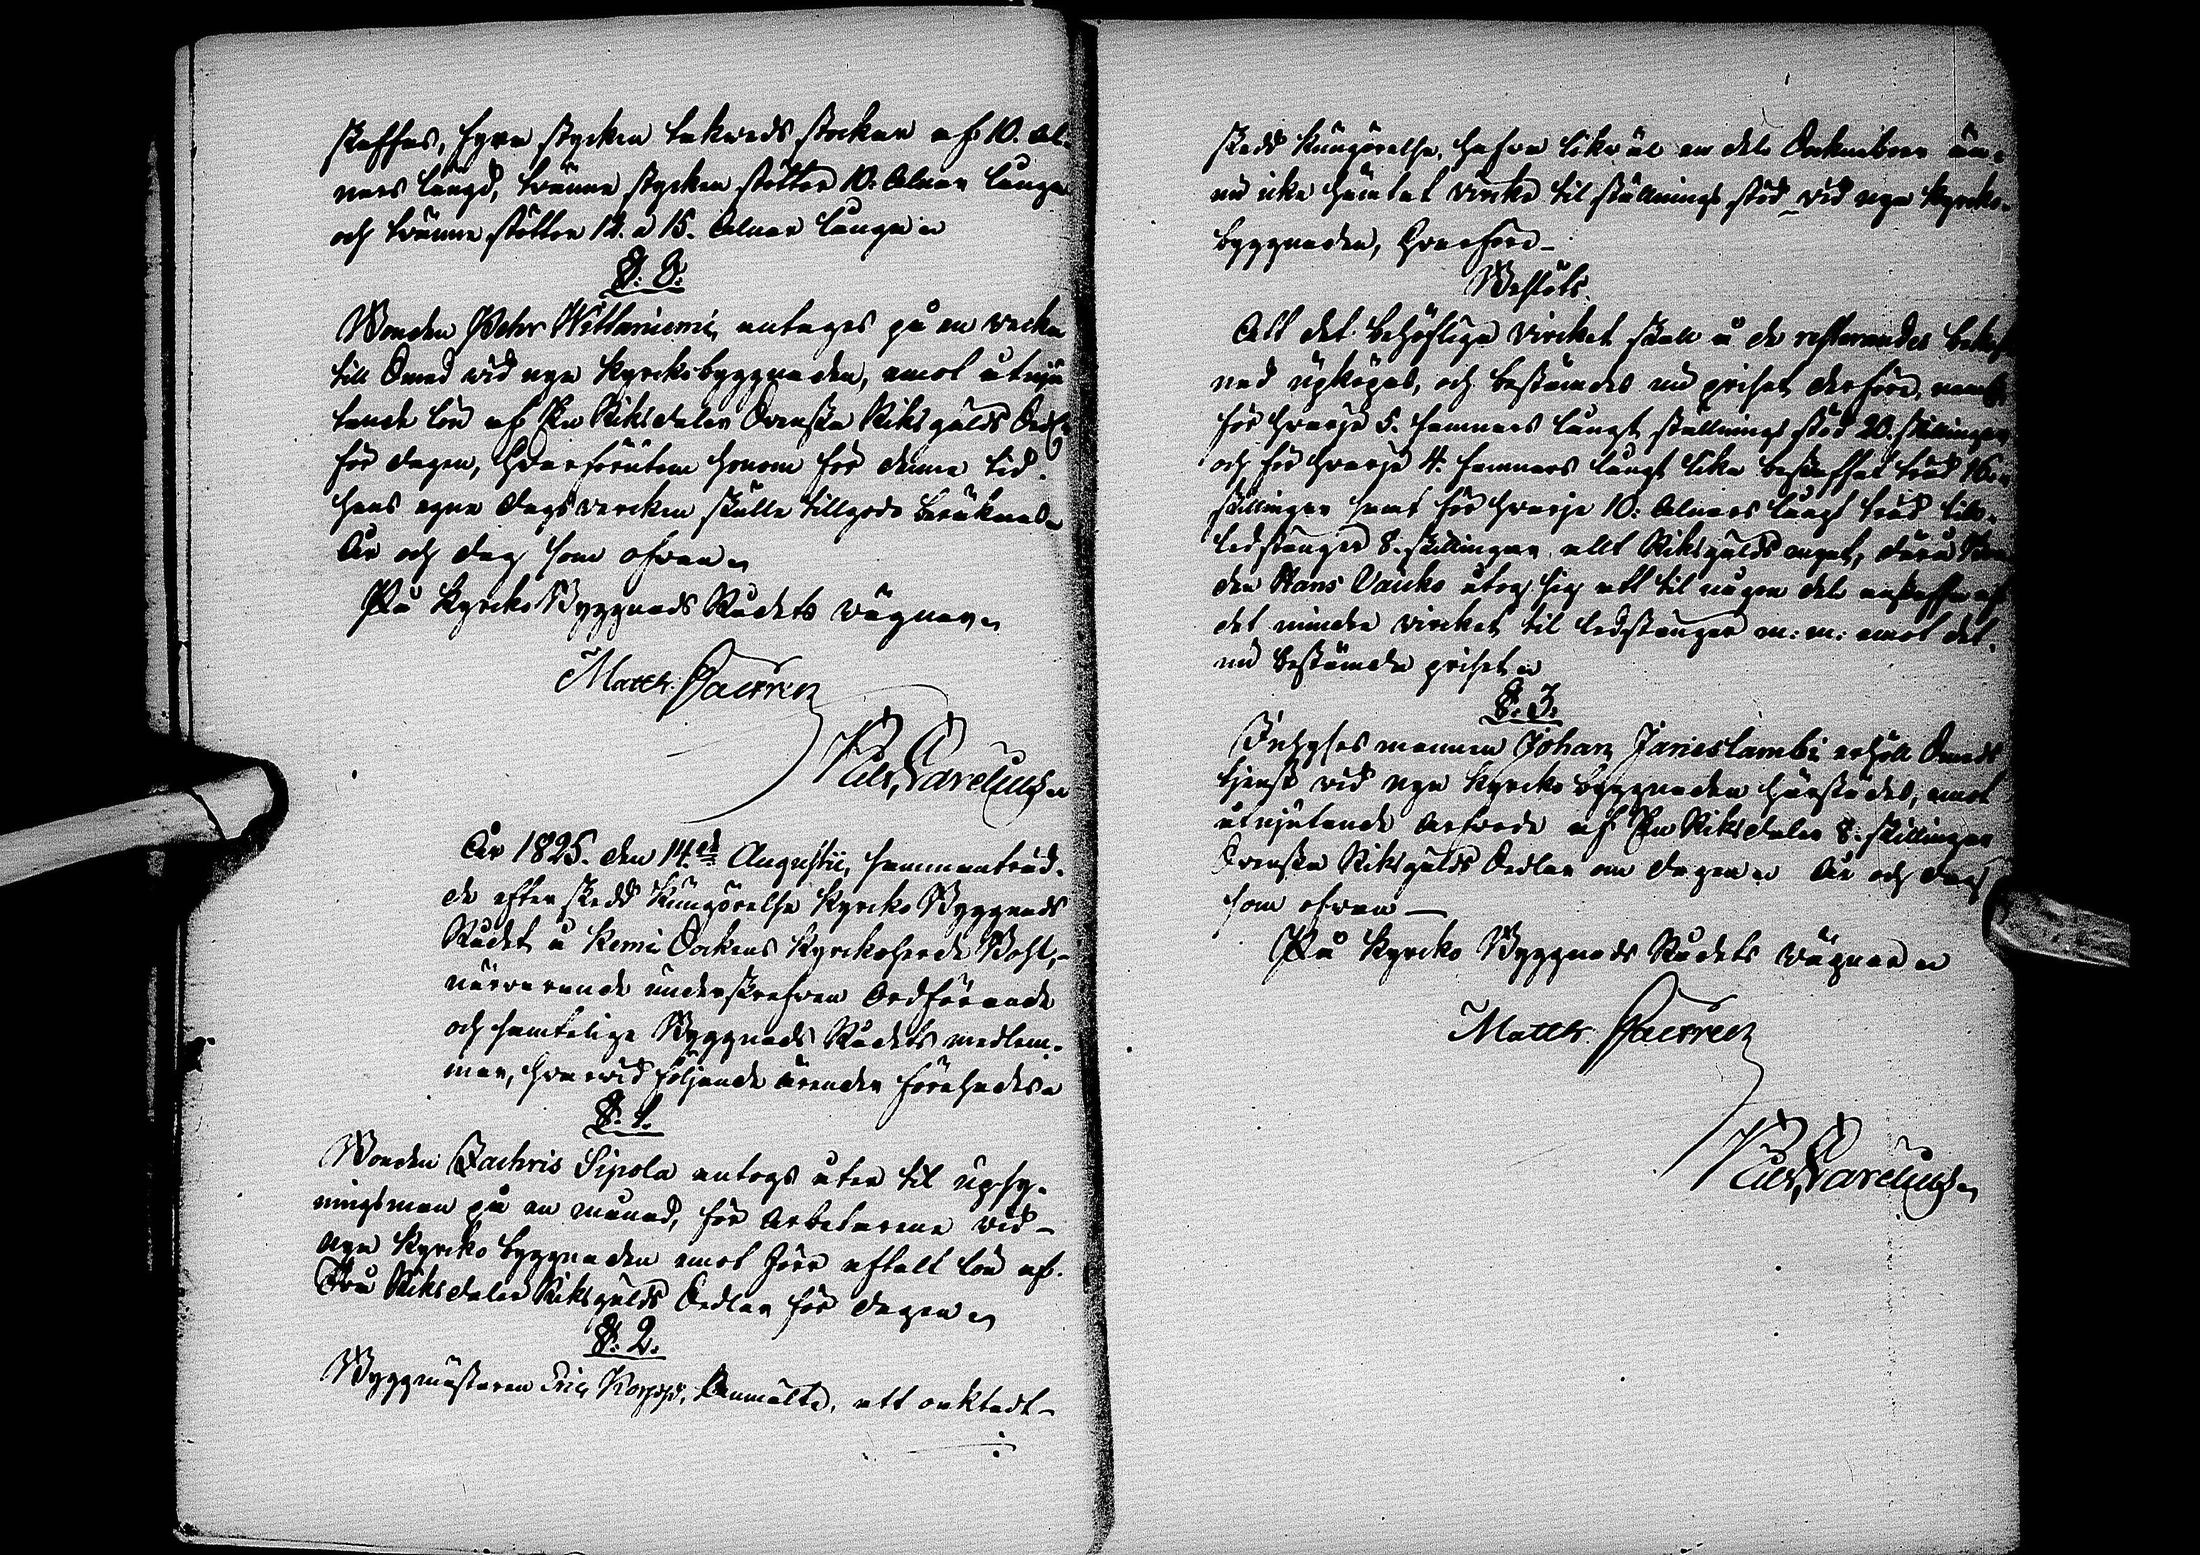 skaffas, fyra stycken takveds stockar af 10. Al-
nars längd, tränne stycken stöttor 10. Alnar långa
och tränne stöttor 12. a 15. Alnar långa
§. 8.
Bonden Petter Wittaniemi, antages på en vecka
till Smed vid nya kyrkobyggnaden, emot åtnju
tande lön af En Riksdaler Svenska Riksgälds Sedl.
för dagen, hvarförutom honom för denna tid
hans egna dagsvercken skulle tillgodo beräknas
År och dag som ofvan
På Kyrko Byggnads Rådets vägnar
Matth. Paurén
År 1825. den 14.de Augustii, sammanträd-
de efter skedd kungörelse Kyrko Byggnads
Rådet i Kemi Sockens Kyrkoherde Bohl,
närvarande underskrefven Ordförande
och samtelige Byggnads Rådets medlem-
mar, hvarvid följande ärenden förehades
§. 1.
Bonden Zachris Sipola antogs åter til upsy-
ningsman på en månad, för arbetarena vid
nya kyrko byggnaden emot förr aftalt lön af
Två Riksdaler Riksgälds Sedlar för dagen
§. 2.
Byggmästaren Eric Korppi, Anmälte, att oaktadt
skedd kungörelse, hafva likväl en del Sockneboer än-
nu icke hämtat virke til ställnings stöd vid nya kyrko-
byggnaden, hvarföre
Beslöts.
Att det behöfliga virket skall å de resterandes bekost
nad upköpas, och bestämdes nu priset derföre, neml.
för hvarje 5. famnars långt ställnings stöd 20. skillingar
och för hvarje 4. famnars långt lika beskaffat träd 16
skillingar samt för hvarje 10. Alnars långt träd till
ledstänger 8. skillingar allt Riksgälds mynt, därå Bon
den Hans Vaicko åtog sig att til någon del anskaffa af
det mindre virket til ledstänger m: m: emot det
nu bestämda priset
§. 3.
Inhyses mannen Johan Janieslambi erhöll Smeds
tjenst vid nya Kyrko byggnaden härstädes, emot
åtnjutande Arfvode af En Riksdaler 8. skillingar
Svenska Riksgälds Sedlar om dagen År och dag
som ofvan
På Kyrko Byggnads Rådets vägnar
Matth. Paurén